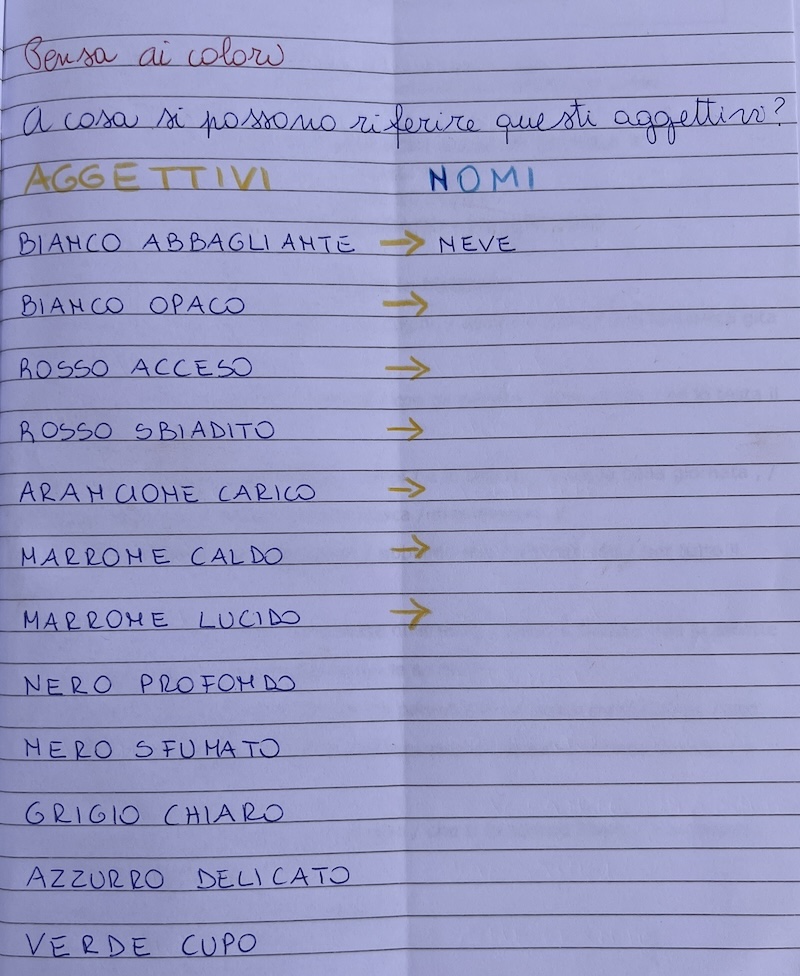 Pensa ai colori
A cosa si possono riferire questi aggettivi?
AGGETTIVI NOMI
BIANCO ABBAGLIANTE → NEVE
BIANCO OPACO →
ROSSO ACCESO →
ROSSO SBIADITO →
ARANCIONE CARICO →
MARRONE CALDO →
MARRONE LUCIDO →
NERO PROFONDO
NERO SFUMATO
GRIGIO CHIARO
AZZURRO DELICATO
VERDE CUPO